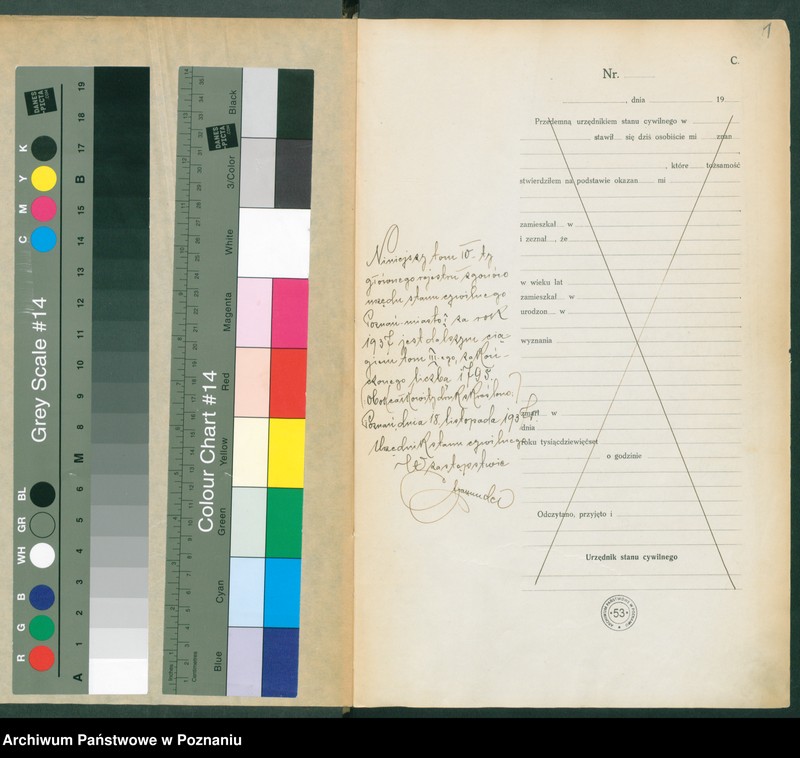 1
C.
Nr.
, dnia 19
Przedemną urzędnikiem stanu cywilnego w
stawił się dziś osobiście mi znan
, które tożsamość
stwierdziłem na podstawie okazan mi
zamieszkał w
i zeznał , że
w wieku lat
zamieszkał w
urodzon w
wyznania
zmarł w
dnia
roku tysiącdziewięćset
o godzinie
Odczytano, przyjęto i
Urzędnik stanu cywilnego
Niniejszy tom IV-ty
głównego rejestru zgonów
urzędu stanu cywilnego
Poznań-miasto za rok
1937 jest dalszym cią-
giem tom III-ego, zakoń-
czonego liczbą 1795.
Poznań, dnia 18 listopada 1937 r.
Urzędnik stanu cywilnego
W zastępstwie
53
Grey Scale #14
DANES
PICTA
.com
A 1 2 3 4 5 6 M 8 9 10 11 12 13 14 15 B 17 18 19
R G B WH GR BL C M Y K
Colour Chart #14
DANES
PICTA
.com
Blue Cyan Green Yellow Red Magenta White 3/Color Black
Inches
Centimetres
Archiwum Państwowe w Poznaniu